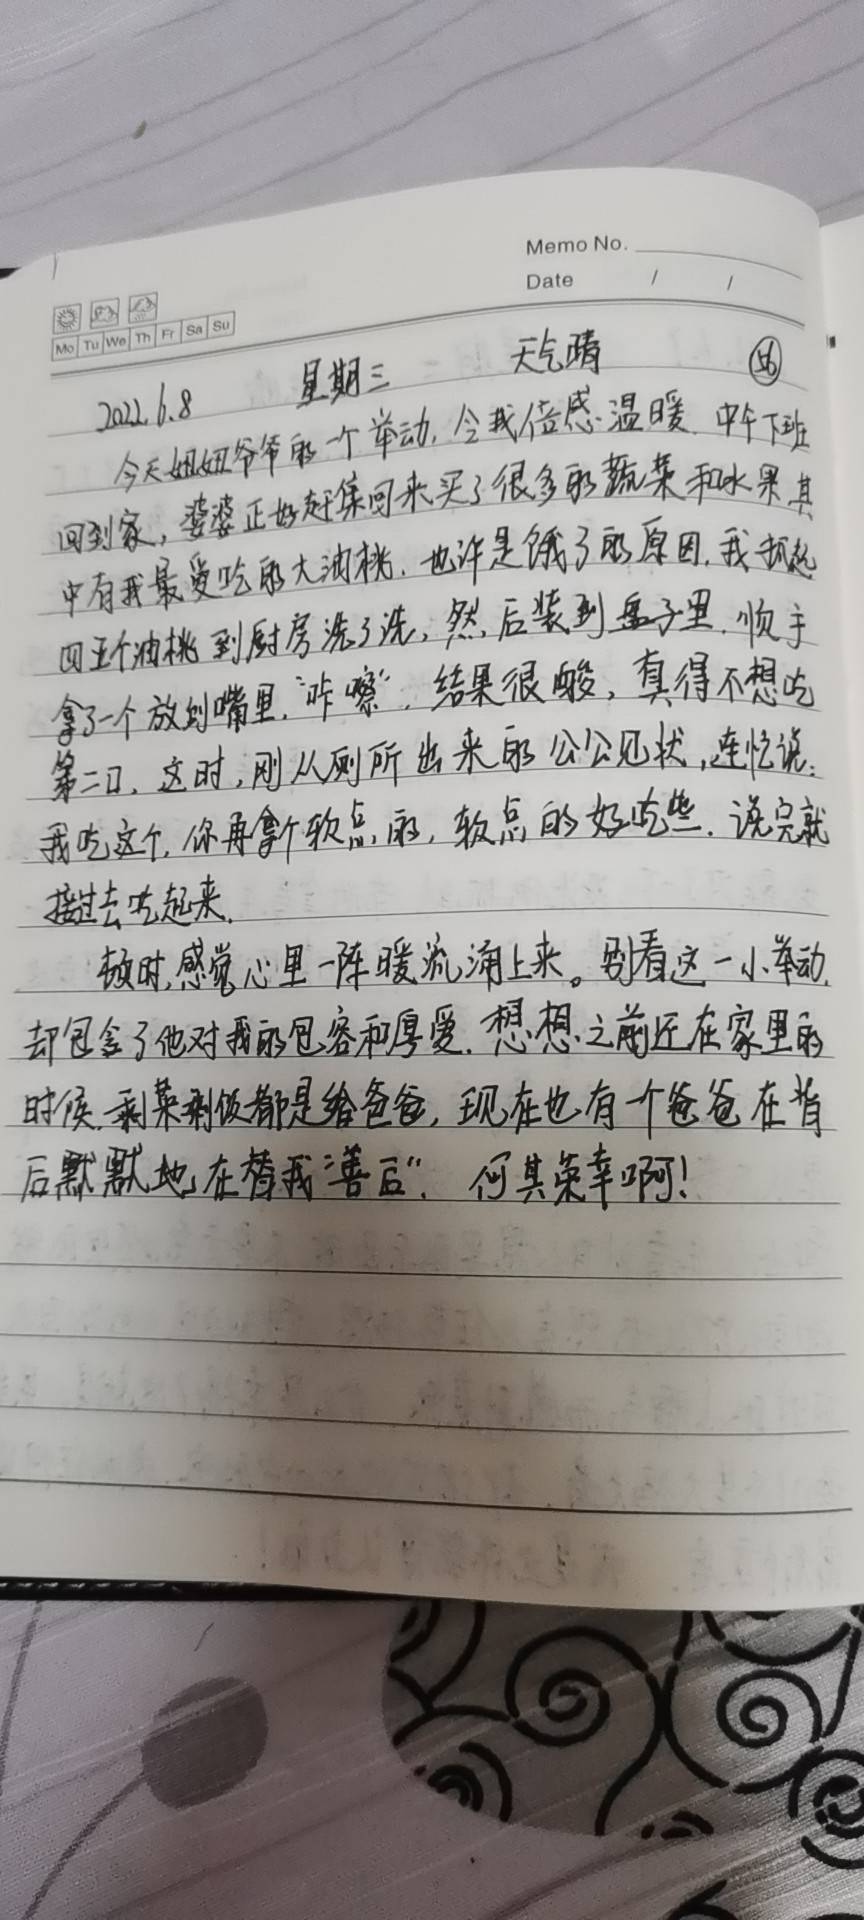 Memo No.
Date / /
Mo Tu We Th Fr Sa Su
2022.6.8 星期三 天气晴 56
今天妞妞爷爷的一个举动,令我倍感温暖.中午下班
回到家,婆婆正好赶集回来买了很多的蔬菜和水果其
中有我最爱吃的大油桃.也许是饿了的原因,我抓起
四五个油桃到厨房洗了洗,然后装到盘子里.顺手
拿了一个放到嘴里,“咔嚓”,结果很酸,真得不想吃
第二口,这时,刚从厕所出来的公公见状,连忙说:
我吃这个,你再拿个软点的,软点的好吃些.说完就
接过去吃起来.
顿时,感觉心里一阵暖流涌上来。别看这一小举动,
却包含了他对我的包容和厚爱.想想之前还在家里的
时候.剩菜剩饭都是给爸爸,现在也有一个爸爸在背
后默默地在替我“善后”.何其荣幸啊!